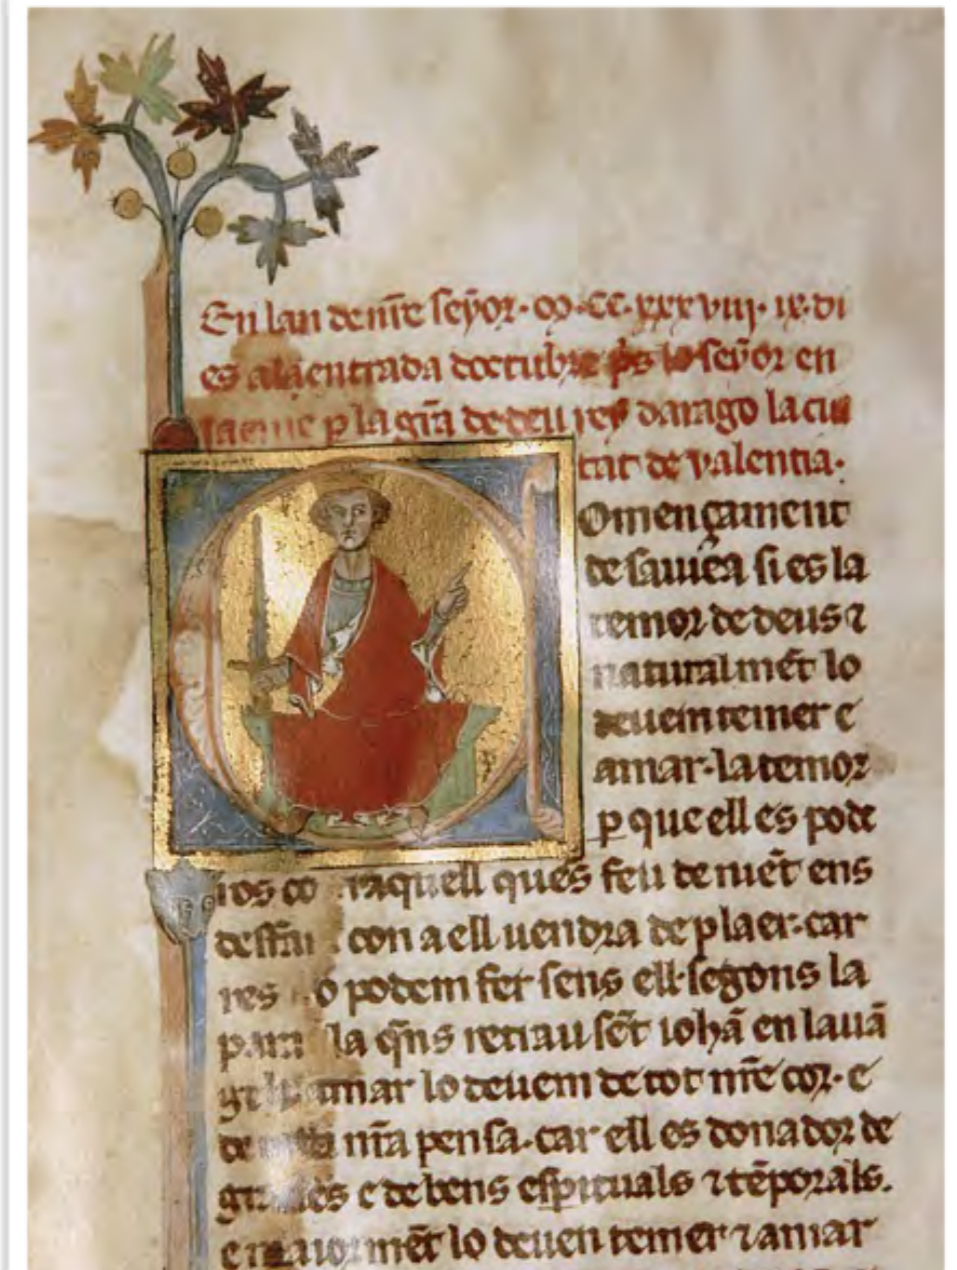 En lan de nr̄e seÿor · M · CC · xxx viii · ix · di
es ala entrada doctubre p̄s lo seÿor en
Jacme p la gr̄a de deu rey darago la ciu
tat de valentia ·
Omençament
de sauiea si es la
temor de deus ⁊
natural mēt lo
deuem temer e
amar · la temor
p que ell es pode
ros raquell ques feu de niēt ens
con a ell uendra de plaer · car
res o podem fer sens ell · segons la
la q̄ns retrau sēt iohā en lauā
amar lo deuem de tot nr̄e cor · e
de nr̄a pensa · car ell es donador de
e de bens esp̄ituals ⁊ tēporals .
e maior mēt lo deuen temer ⁊ amar